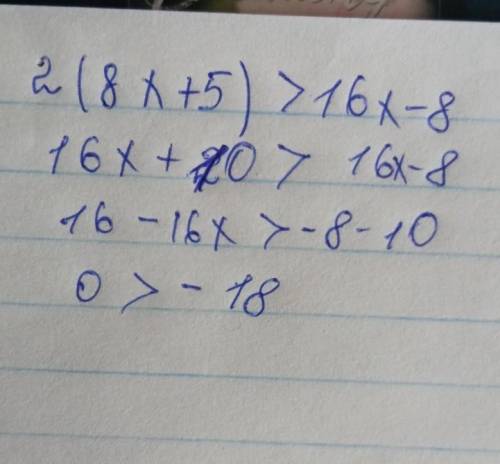 2(8x+5)>16x-8
16x+10>16x-8
16-16x>-8-10
0>-18